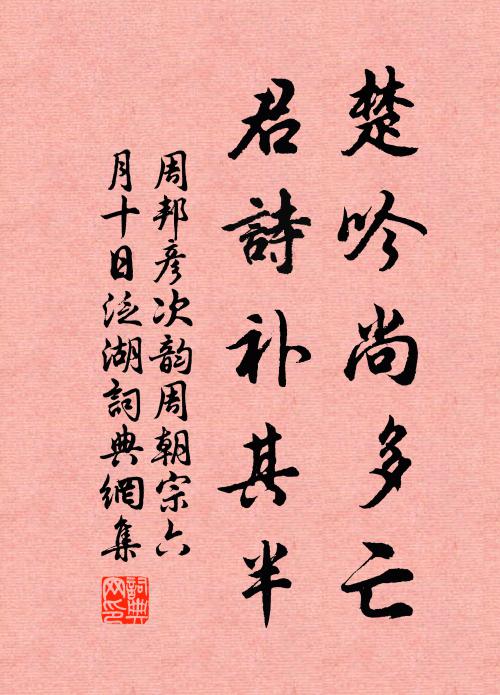 楚吟尚多亡
君詩补其半
周邦彦次韵周朝宗六
月十日泛湖詞典網集
詞典网印